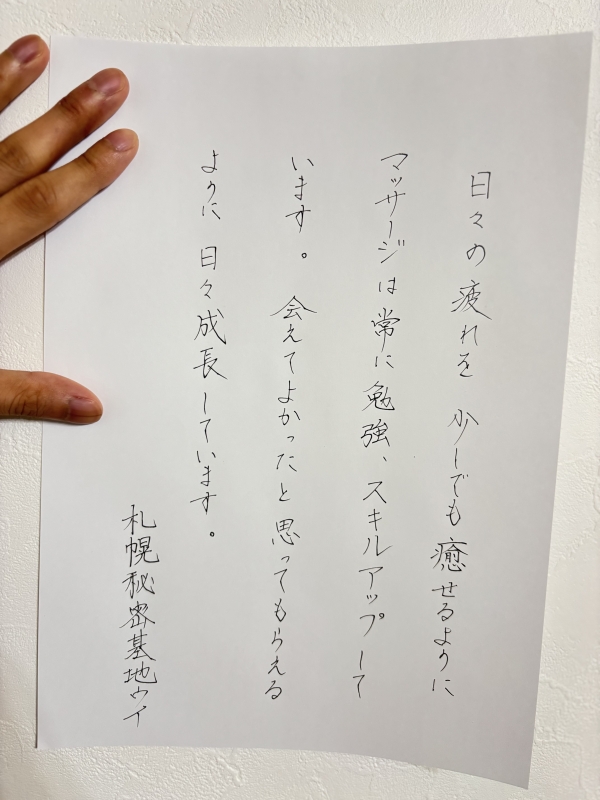 日々の疲れを 少しでも癒せるように
マッサージは常に勉強、スキルアップして
います。 会えてよかったと思ってもらえる
ように 日々成長しています。
札幌秘密基地ウイ